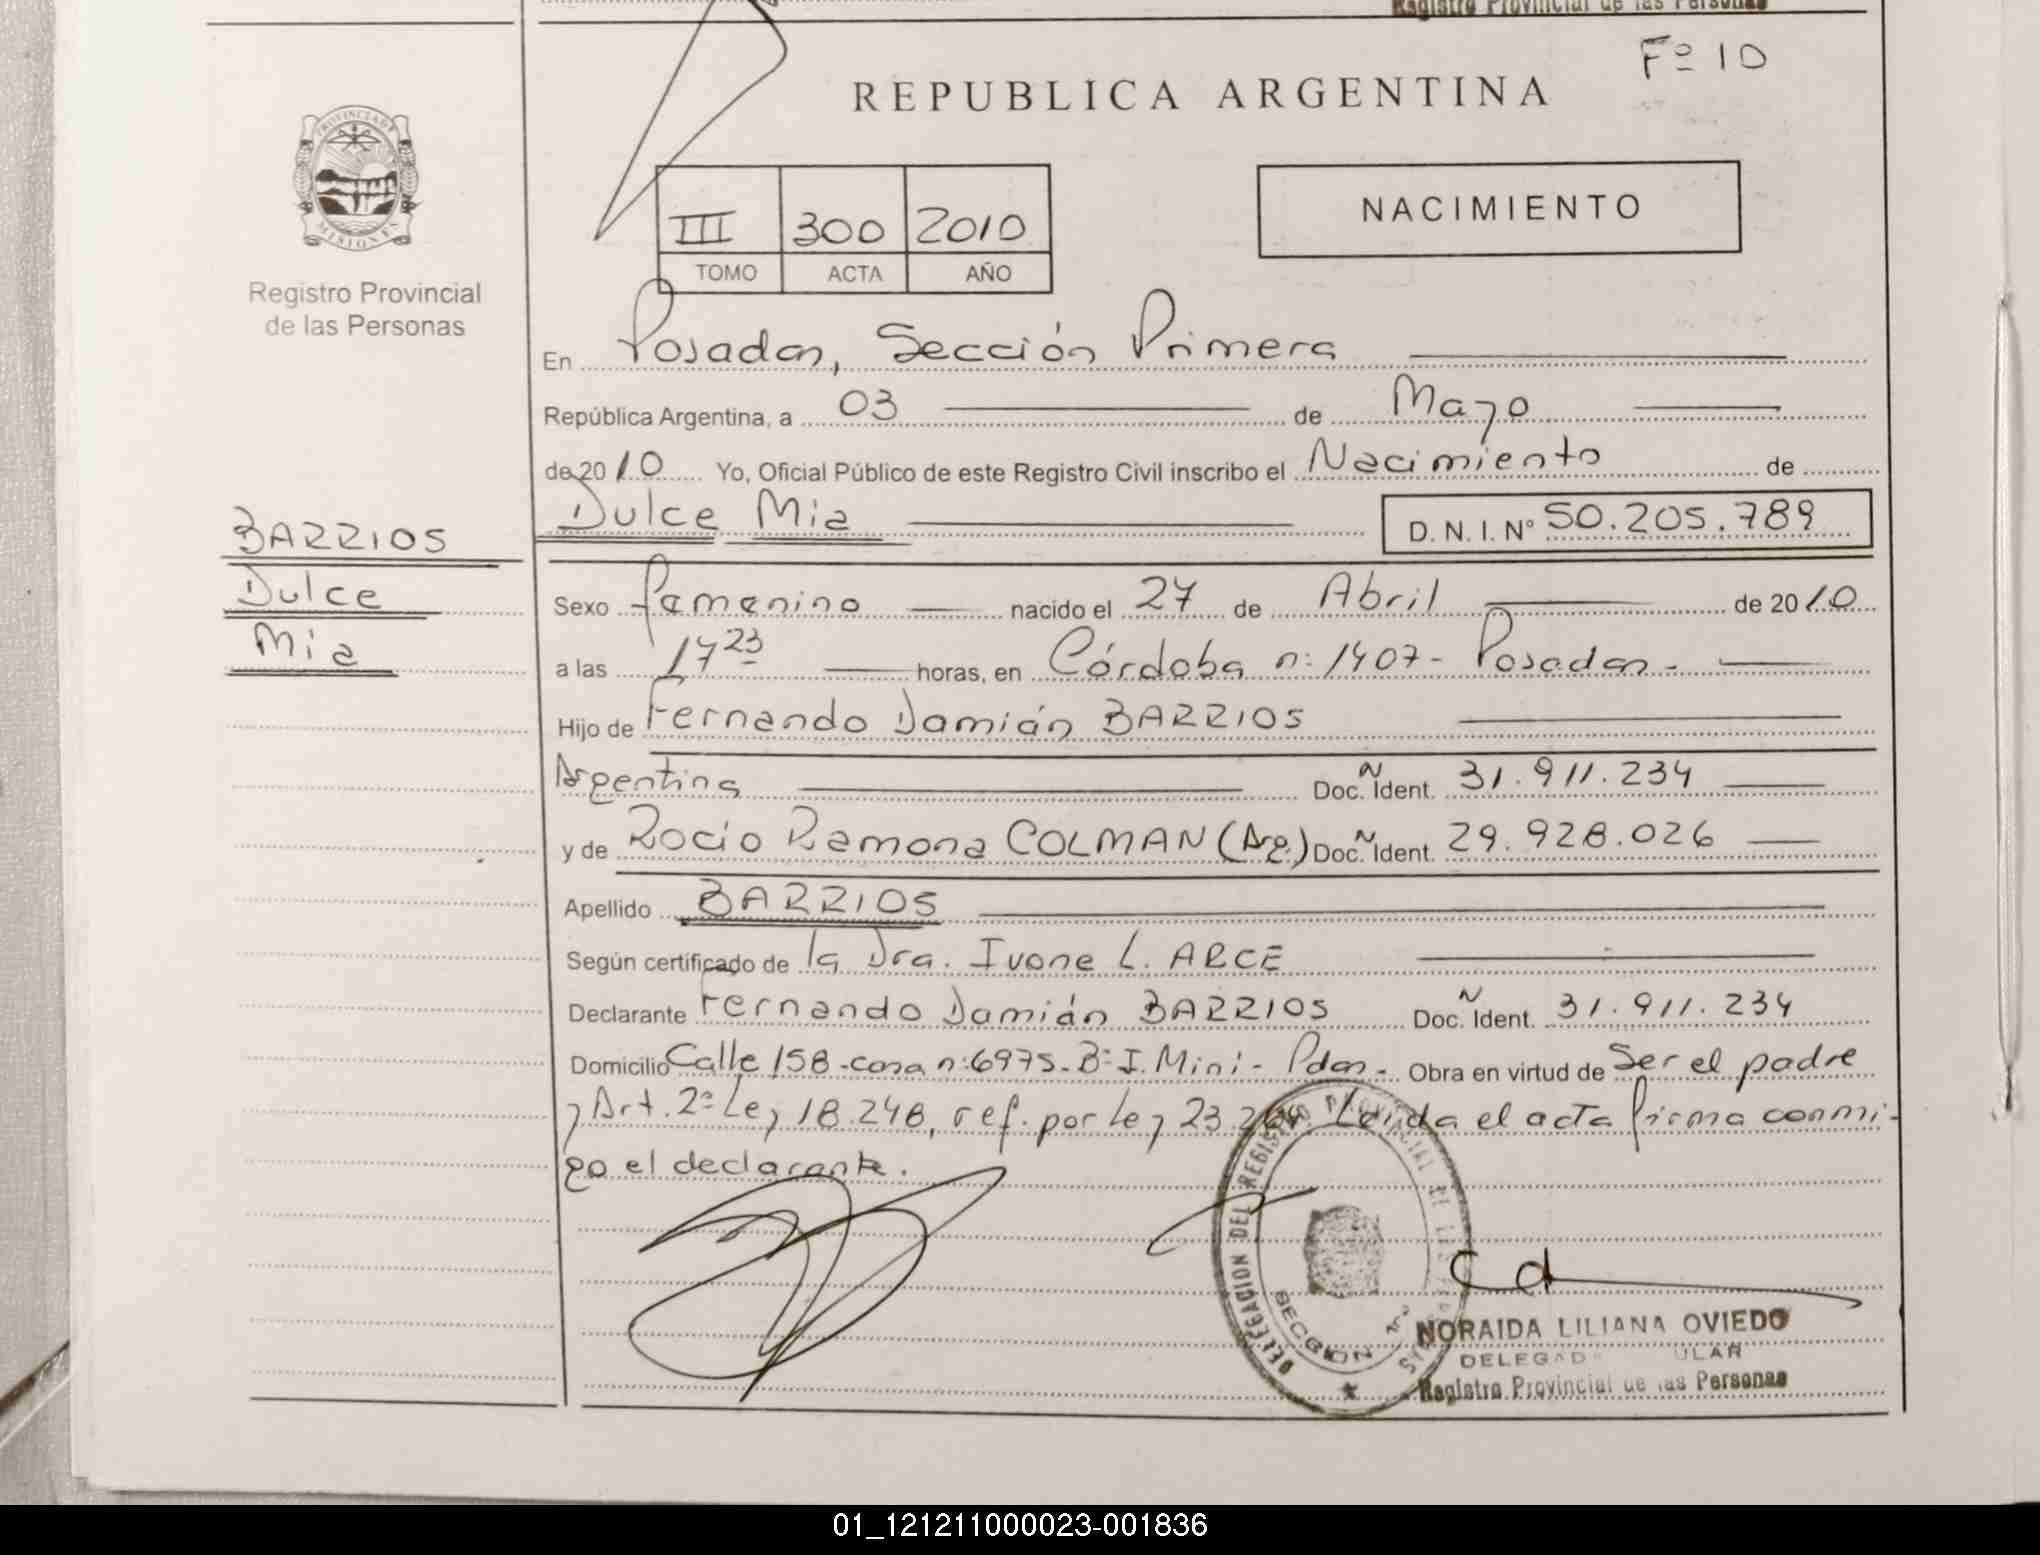 Registro Provincial de las Personas
Fº 10
REPUBLICA ARGENTINA
PROVINCIA DE
MISIONES
Registro Provincial
de las Personas
III 300 2010
TOMO ACTA AÑO
NACIMIENTO
En Posadas, Sección Primera
República Argentina, a 03 de Mayo
de 2010 Yo, Oficial Público de este Registro Civil inscribo el Nacimiento de
Dulce Mia D. N. I. Nº 50.205.789
BARRIOS
Dulce
Mia
Sexo femenino nacido el 27 de Abril de 2010
a las 17 23 horas, en Córdoba nº 1407- Posadas-
Hijo de Fernando Damián BARRIOS
Argentina Doc. Ident. 31.911.234
y de Rocio Ramona COLMAN (Arg.) Doc. Ident. 29.928.026
Apellido BARRIOS
Según certificado de la Dra. Ivone L. ARCE
Declarante Fernando Damián BARRIOS Doc. Ident. 31.911.234
Domicilio Calle 158-casa nº 6975-Bº I. Mini- Pdas- Obra en virtud de Ser el padre
y Art. 2º Ley 18.248, ref. por Ley 23.264 Leida el acta firma conmi-
go el declarante.
DELEGACION DEL REGISTRO PROVINCIAL DE LAS PERSONAS
SECCION 1ª
NORAIDA LILIANA OVIEDO
Registro Provincial de las Personas
01_121211000023-001836